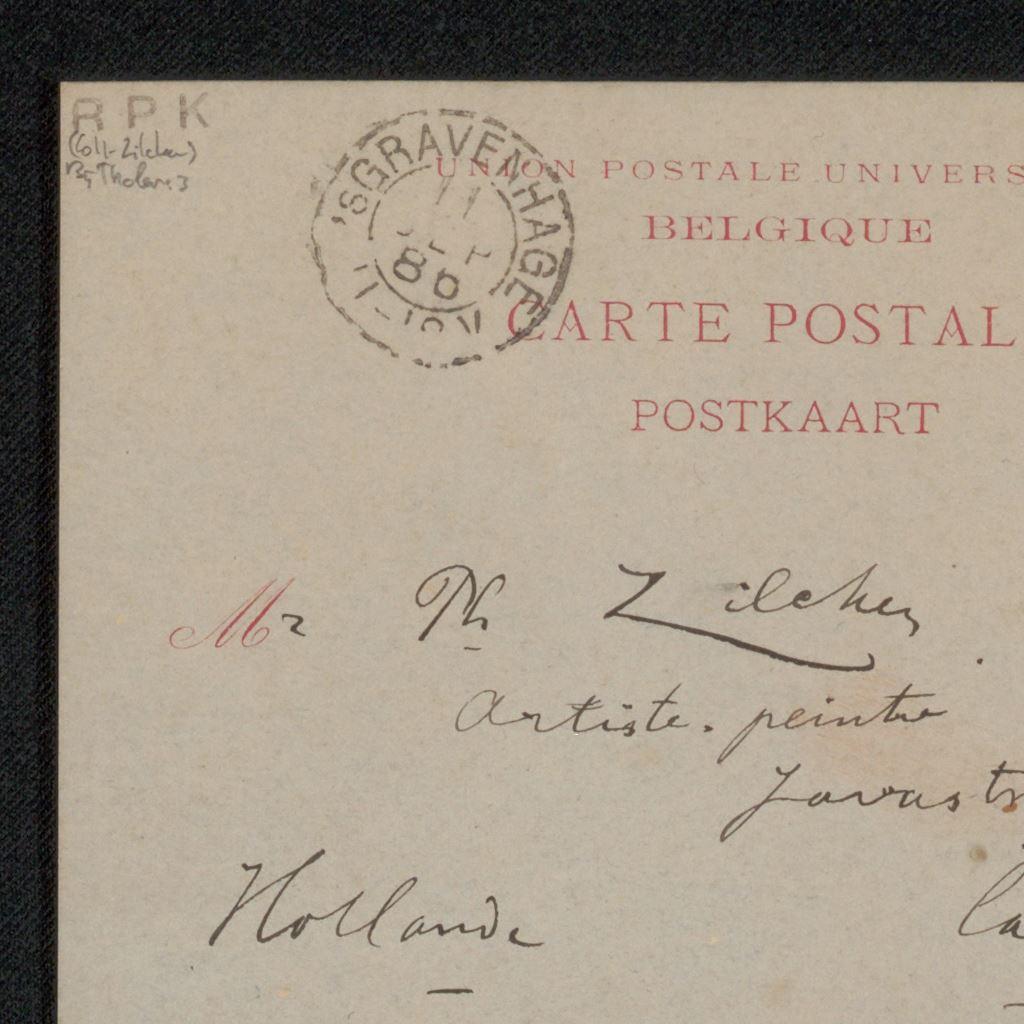 RPK
(Coll-Zilcken)
'SGRAVENHAGE
11
SEP
86
UNION POSTALE UNIVERS
BELGIQUE
CARTE POSTAL
POSTKAART
Mr Ph Zilcken
Artiste. peintre
Javastr
Hollande
La